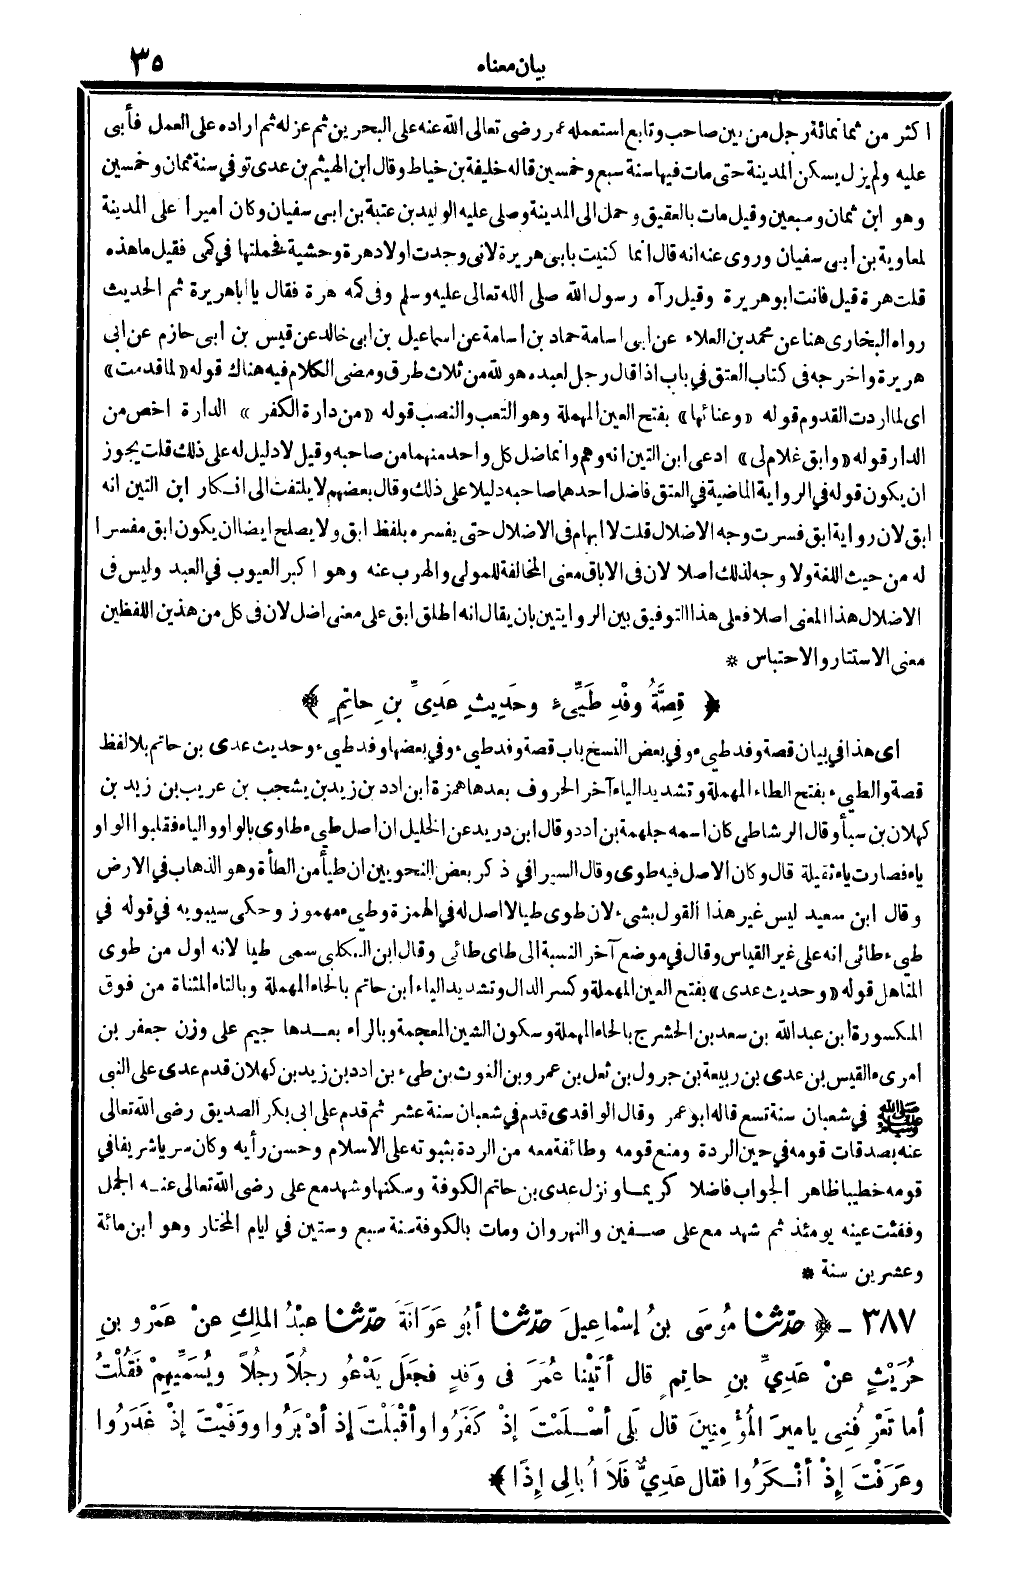 بيان معناه ٣٥
اكثر من ثمانمائة رجل من بين صاحب وتابع استعمله عمر رضى تعالى الله عنه على البحرين ثم عزله ثم اراده على العمل فأبى
عليه ولم يزل يسكن المدينة حتى مات فيها سنة سبع وخمسين قاله خليفة بن خياط وقال ابن الهيثم بن عدى توفي سنة ثمان وخمسين
وهو ابن ثمان وسبعين وقيل مات بالعقيق وحمل الى المدينة وصلى عليه الوليد بن عتبة بن ابى سفيان وكان أميرا على المدينة
لمعاوية بن أبى سفيان وروى عنه انه قال انما كنيت بابى هريرة لانى وجدت اولاد هرة وحشية فحملتها في كمى فقيل ما هذه
قلت هرة قيل فانت ابو هريرة وقيل رآه رسول الله صلى الله تعالى عليه وسلم وفى كمه هرة فقال يا اباهريرة ثم الحديث
رواه البخارى هنا عن محمد بن العلاء عن ابى اسامة حماد بن أسامة عن اسماعيل بن ابى خالد عن قيس بن ابى حازم عن ابى
هريرة واخرجه فى كتاب العتق في باب اذا قال رجل لعبده هو لله من ثلاث طرق ومضى الكلام فيه هناك قوله «لما قدمت»
اى لما اردت القدوم قوله «وعنائها» بفتح العين المهملة وهو التعب والنصب قوله «من دارة الكفر» الدارة اخص من
الدار قوله «وابق غلام لى» ادعى ابن التين انه وهم وانما ضل كل واحد منهما من صاحبه وقيل لا دليل له على ذلك قلت يجوز
ان يكون قوله في الرواية الماضية في العتق فاضل احدهما صاحبه دليلا على ذلك وقال بعضهم لا يلتفت الى انكار ابن التين انه
ابق لان رواية ابق فسرت وجه الاضلال قلت لا ابهام فى الاضلال حتى يفسره بلفظ ابق ولا يصلح ايضا ان يكون ابق مفسرا
له من حيث اللغة ولا وجه لذلك أصلا لان فى الاباق معنى المخالفة للمولى والهرب عنه وهو اكبر العيوب في العبد وليس فى
الاضلال هذا المعنى اصلا فعلى هذا التوفيق بين الروايتين بان يقال انه اطلق ابق على معنى اضل لان فى كل من هذين اللفظين
معنى الاستتار والاحتباس *
﴿ قِصَّةُ وفْدِ طَيِّىءٍ وحَدِيثِ عَدِىِّ بنِ حاتِمٍ ﴾
اى هذا في بيان قصة وفد طيىء وفي بعض النسخ باب قصة وفد طيىء وفي بعضها وفد طيىء وحديث عدى بن حاتم بلا لفظ
قصة والطيىء بفتح الطاء المهملة وتشديد الياء آخر الحروف بعدها همزة ابن ادد بن زيد بن يشجب بن عريب بن زيد بن
كهلان بن سبأ وقال الرشاطى كان اسمه جلهمة بن أدد وقال ابن دريد عن الخليل ان اصل طيىء طاوى بالواو والياء فقلبوا الواو
ياء فصارت ياء ثقيلة قال وكان الاصل فيه طوى وقال السيرافي ذكر بعض النحويين ان طيأ من الطأة وهو الذهاب في الارض
وقال ابن سعيد ليس غير هذا القول بشىء لان طوى طيا لا اصل له في الهمزة وطيىء مهموز وحكى سيبويه في قوله في
طيىء طائى انه على غير القياس وقال في موضع آخر النسبة الى طاى طائى وقال ابن الكلبى سمى طيا لانه اول من طوى
المناهل قوله «وحديث عدى» بفتح العين المهملة وكسر الدال وتشديد الياء ابن حاتم بالحاء المهملة وبالتاء المثناة من فوق
المكسورة ابن عبد الله بن سعد بن الحشرج بالحاء المهملة وسكون الشين المعجمة وبالراء بعدها جيم على وزن جعفر بن
امرىء القيس بن عدى بن ربيعة بن جرول بن ثعل بن عمرو بن الغوث بن طىء بن ادد بن زيد بن كهلان قدم عدى على النبى
ﷺ في شعبان سنة تسع قاله ابو عمر وقال الواقدى قدم في شعبان سنة عشر ثم قدم على ابى بكر الصديق رضى الله تعالى
عنه بصدقات قومه في حين الردة ومنع قومه وطائفة معه من الردة بثبوته على الاسلام وحسن رأيه وكان سريا شريفا في
قومه خطيبا ظاهر الجواب فاضلا كريما ونزل عدى بن حاتم الكوفة وسكنها وشهد مع على رضى الله تعالى عنه الجمل
وفقئت عينه يومئذ ثم شهد مع على صفين والنهروان ومات بالكوفة سنة سبع وستين في ايام المختار وهو ابن مائة
وعشرين سنة *
٣٨٧ - ﴿ حدّثنا مُوسَى بنُ إسْماعِيلَ حدّثنا أبُو عَوَانَةَ حدّثنا عبْدُ الملِكِ عنْ عَمْرِو بنِ
حُرَيْثٍ عنْ عَدِيِّ بنِ حاتِمٍ قال أتَيْنا عُمَرَ فى وَفدٍ فجَعَلَ يَدْعُو رجُلاً رجُلاً ويُسَمِّيهِمْ فقُلْتُ
أما تَعْرِفُنِى ياأميرَ المُؤْمِنِينَ قال بَلى أسْلَمْتَ إذْ كَفَرُوا وأقْبَلْتَ إذ أدْبَرُوا ووَفَيْتَ إذْ غَدَرُوا
وعَرَفْتَ إذْ أنْكَرُوا فقال عَدِيٌّ فَلاَ أُبالِى إذًا ﴾